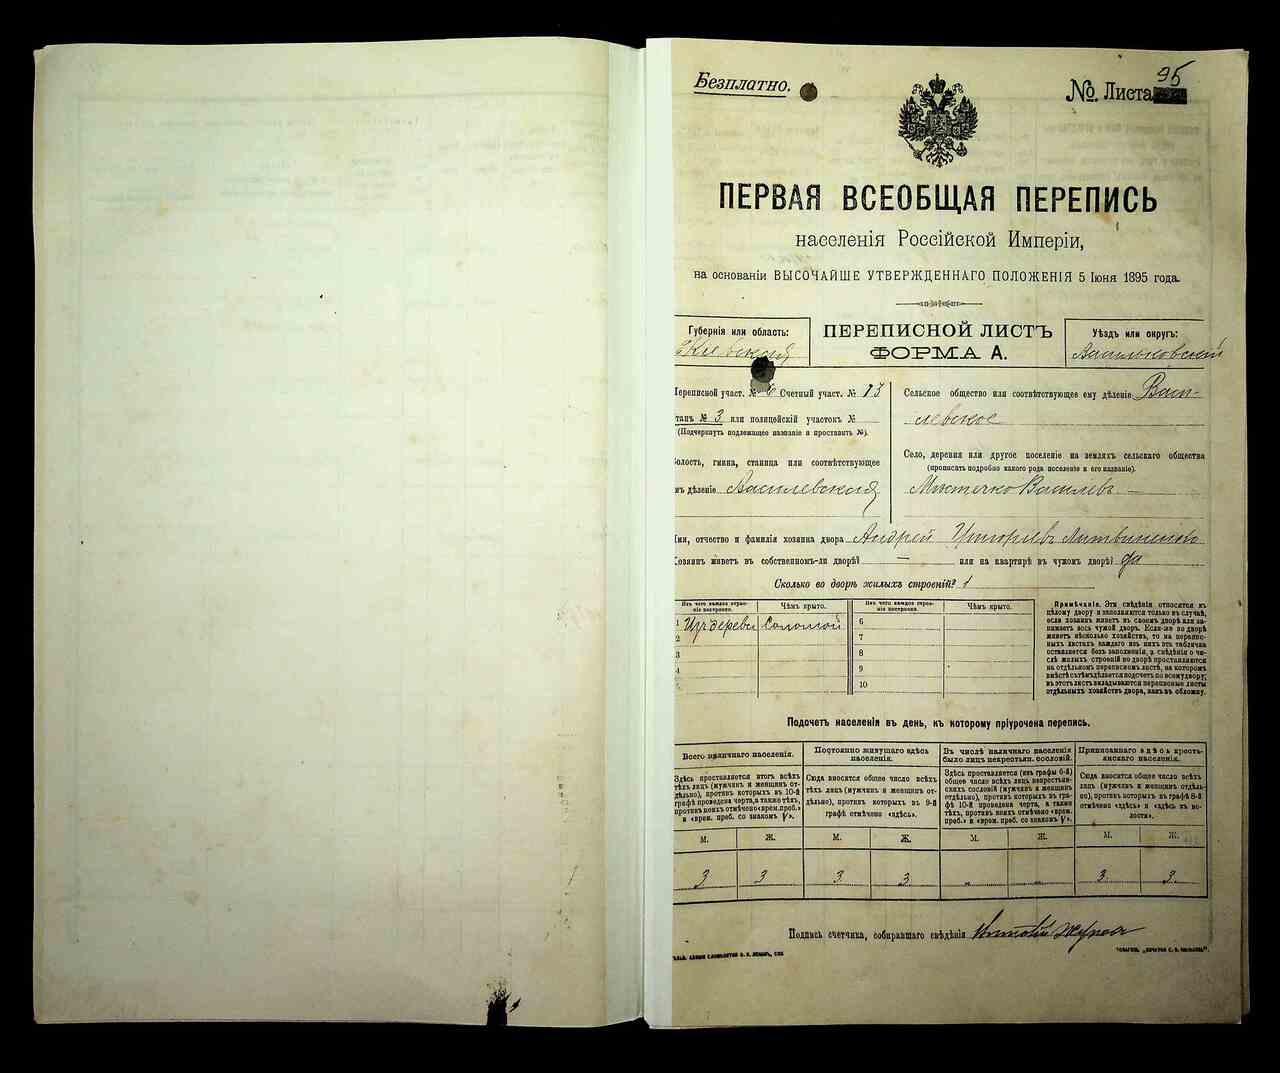 Безплатно.
№. Листа 95
ПЕРВАЯ ВСЕОБЩАЯ ПЕРЕПИСЬ
населенія Россійской Имперіи,
на основаніи ВЫСОЧАЙШЕ УТВЕРЖДЕННАГО ПОЛОЖЕНІЯ 5 Іюня 1895 года.
Губернія или область:
Кіевская
ПЕРЕПИСНОЙ ЛИСТЪ
ФОРМА А.
Уѣздъ или округъ:
Васильковскій
Переписной участ. № Счетный участ. № 13
станъ № 3 или полицейскій участокъ №
(Подчеркнуть подлежащее названіе и проставить №).
Волость, гмина, станица или соотвѣтствующее
имъ дѣленіе Василевская
Сельское общество или соотвѣтствующее ему дѣленіе Васи-
левское
Село, деревня или другое поселеніе на земляхъ сельскаго общества
(прописать подробно какого рода поселеніе и его названіе).
Мѣстечко Василевъ —
Имя, отчество и фамилія хозяина двора Андрей Григорьевъ Литвиненко
Хозяинъ живетъ въ собственномъ-ли дворѣ? — или на квартирѣ въ чужомъ дворѣ? да
Сколько во дворѣ жилыхъ строеній? 1
Изъ чего каждое строе-
ніе построено.
Чѣмъ крыто.
Изъ чего каждое строе-
ніе построено.
Чѣмъ крыто.
1 Изъ дерева Соломой 6
2 7
3 8
4 9
5 10
Примѣчаніе. Эти свѣдѣнія относятся къ
цѣлому двору и заполняются только въ случаѣ,
если хозяинъ живетъ въ своемъ дворѣ или за-
нимаетъ весь чужой дворъ. Если-же во дворѣ
живетъ нѣсколько хозяйствъ, то на перепис-
ныхъ листахъ каждаго изъ нихъ эта табличка
оставляется безъ заполненія, а свѣдѣнія о чи-
слѣ жилыхъ строеній во дворѣ проставляются
на отдѣльномъ переписномъ листѣ, на которомъ
вмѣстѣ съ тѣмъ дѣлается подсчетъ по всему двору;
въ этотъ листъ вкладываются переписные листы
отдѣльныхъ хозяйствъ двора, какъ въ обложку.
Подсчетъ населенія въ день, къ которому пріурочена перепись.
Всего наличнаго населенія.
Здѣсь проставляется итогъ всѣхъ
тѣхъ лицъ (мужчинъ и женщинъ от-
дѣльно), противъ которыхъ въ 10-й
графѣ проведена черта, а также тѣхъ,
противъ коихъ отмѣчено «врем. проб.»
и «врем. преб. со знакомъ V».
Постоянно живущаго здѣсь
населенія.
Сюда вносится общее число всѣхъ
тѣхъ лицъ (мужчинъ и женщинъ от-
дѣльно), противъ которыхъ въ 9-й
графѣ отмѣчено «здѣсь».
Въ числѣ наличнаго населенія
было лицъ некрестьян. сословій.
Здѣсь проставляется (изъ графы 6-й)
общее число всѣхъ лицъ некрестьян-
скихъ сословій (мужчинъ и женщинъ
отдѣльно), противъ которыхъ въ гра-
фѣ 10-й проведена черта, а также
тѣхъ, противъ коихъ отмѣчено «врем.
преб.» и «врем. преб. со знакомъ V».
Приписаннаго здѣсь кресть-
янскаго населенія.
Сюда вносится общее число всѣхъ
лицъ (мужчинъ и женщинъ отдѣль-
но), противъ которыхъ въ графѣ 8-й
отмѣчено «здѣсь» и «здѣсь къ во-
лости».
М. Ж. М. Ж. М. Ж. М. Ж.
3 3 3 3 „ „ 3 3
Подпись счетчика, собиравшаго свѣдѣнія